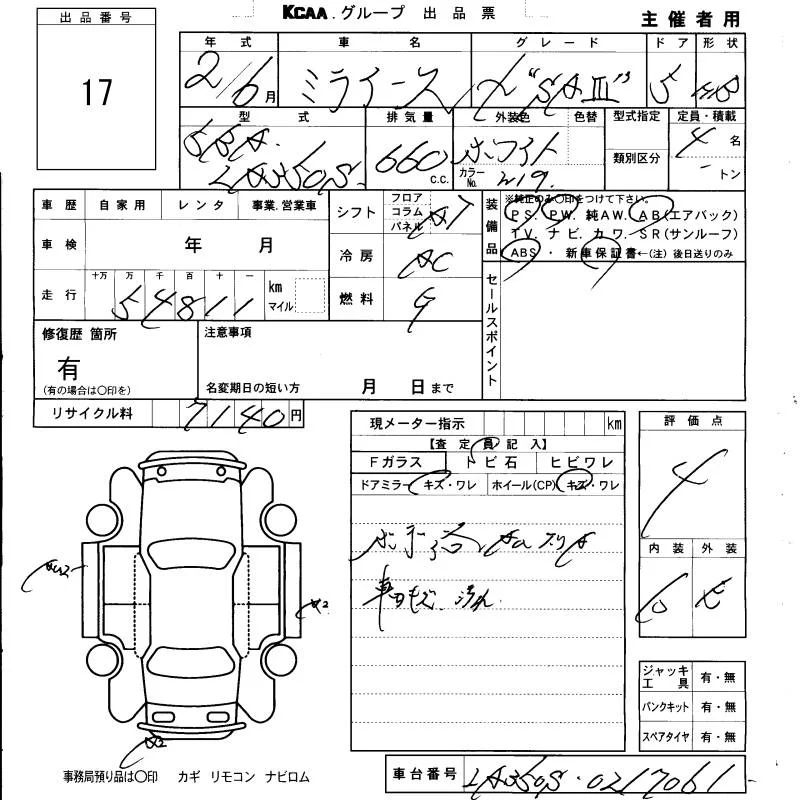 出品番号
17
KCAA.グループ 出品票
主催者用
年式 車名 グレード ドア 形状
2/6月 ミライース X "SAⅢ" 5 HB
型式 排気量 外装色 色替 型式指定 定員・積載
5BA 660 c.c. ホワイト 4名
LA350S カラーNo. W19. 類別区分 トン
車歴 自家用 レンタ 事業.営業車
シフト フロア コラム パネル AT
車検 年 月
冷房 AC
十万 万 千 百 十 一
走行 54811 km マイル
燃料 G
装備品
※純正のみ○印をつけて下さい。
PS. PW. 純AW. AB(エアバック)
TV. ナビ. カワ. SR(サンルーフ)
ABS ・ 新車保証書←(注)後日送りのみ
セールスポイント
修復歴 箇所
有
(有の場合は○印を)
注意事項
名変期日の短い方 月 日まで
リサイクル料 7140円
現メーター指示 km
【査定員記入】
Fガラス トビ石 ヒビワレ
ドアミラー キズ・ワレ ホイール(CP) キズ・ワレ
評価点
4
内装 外装
A2
A2
ジャッキ工具 有・無
パンクキット 有・無
スペアタイヤ 有・無
事務局預り品は○印 カギ リモコン ナビロム
車台番号 LA350S-0217061